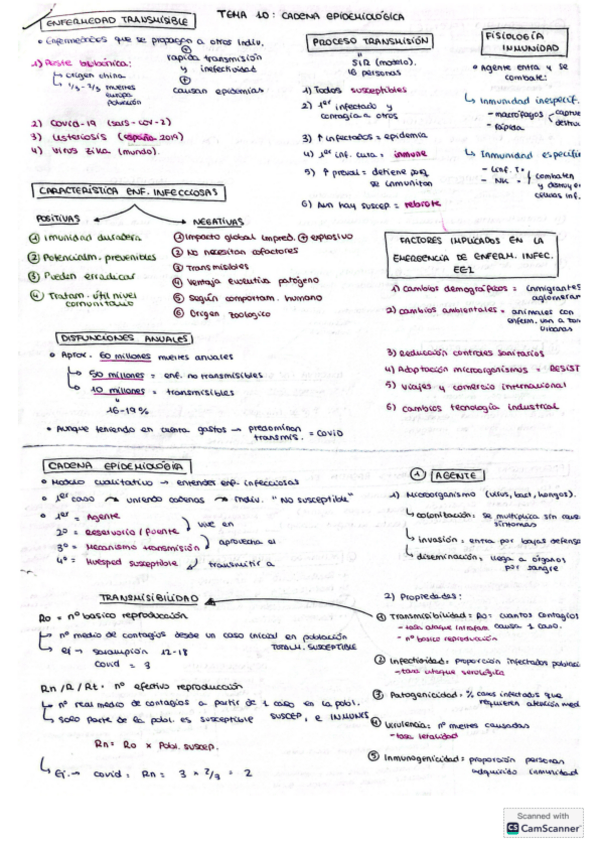 TEMA 10: CADENA EPIDEMIOLÓGICA
ENFERMEDAD TRANSMISIBLE
• Enfermedades que se propagan a otros indiv.
+
rapida transmisión
y infectividad
+
causan epidemias
1) Peste bubónica:
↳ origen china
↳ 1/3 - 2/3 muertes
europa
población
2) Covid-19 (sars-cov-2)
3) Listeriosis (españa 2019)
4) Virus Zika (mundo).
PROCESO TRANSMISIÓN
SIR (modelo).
16 personas
1) Todos susceptibles
2) 1er infectado y
contagia a otros
3) ↑ infectados = epidemia
4) 1er inf. cura = inmune
5) ↑ preval = detiene porq
se inmunitan
6) Aun hay suscep = rebrote
FISIOLOGÍA
INMUNIDAD
• Agente entra y se
combate:
↳ Inmunidad inespecif.
- macrófagos
- rápida
captur
destru
↳ Inmunidad especifi
- Linf. T
- NK
combaten
y destruye
células inf.
CARACTERÍSTICA ENF. INFECCIOSAS
POSITIVAS
① imunidad duradera
② Potencialm. prevenibles
③ Pueden erradicar
④ Tratam. útil nivel
comunitario
NEGATIVAS
① Impacto global impred. + explosivo
② No necesitan cofactores
③ Transmisibles
④ Ventaja evolutiva patógeno
⑤ Según comportam. humano
⑥ Origen zoologico
FACTORES IMPLICADOS EN LA
EMERGENCIA DE ENFERM. INFEC.
EEI
1) Cambios demográficos = inmigrantes
aglomerar
2) Cambios ambientales = animales con
enferm. van a zon
urbanas
3) Reducción controles sanitarios
4) Adaptación microorganismos = RESIST
5) Viajes y comercio internacional
6) Cambios tecnología industrial
DISFUNCIONES ANUALES
• Aprox. 60 millones muertes anuales
↳ 50 millones = enf. no transmisibles
↳ 10 millones = transmisibles
16-19%
• Aunque teniendo en cuenta gastos → predominan
transmis. = Covid
CADENA EPIDEMIOLÓGICA
• Modulo cualitativo → entender enf. infecciosas
• 1er caso → uniendo cadenas → indiv. "NO susceptible"
• 1er = Agente
2º = Reservorio / fuente
3º = Mecanismo transmisión
4º = Huesped susceptible
vive en
aprovecha el
transmitir a
① AGENTE
1) Microorganismo (virus, bact, hongos).
↳ colonización: se multiplica sin caus
síntomas
↳ invasión = entra por bajas defensa
↳ diseminación: llega a órganos
por sangre
TRANSMISIBILIDAD
Ro = nº basico reproducción
↳ nº medio de contagios desde un caso inicial en población
TOTALM. SUSCEPTIBLE
↳ Ej → sarampión 12-18
Covid = 3
Rn / R / Rt = nº efectivo reproducción
↳ nº real medio de contagios a partir de 1 caso en la pobl.
SUSCEP, e INMUNES
↳ solo parte de la pobl. es susceptible
Rn = Ro x Pobl. suscep.
↳ Ej. → covid = Rn = 3 x 2/3 = 2
2) Propiedades:
① Transmisibilidad = Ro = cuantos contagios
causa 1 caso.
- tasa ataque
- nº basico reproducción
② Infectividad = proporción infectados població
- tasa ataque serológica
③ Patogenicidad = % casos infectados que
requieren atención med
④ Virulencia: nº muertes causadas
- tasa letalidad
⑤ Inmunogenicidad = proporción personas
adquirido inmunidad
Scanned with
CS CamScanner